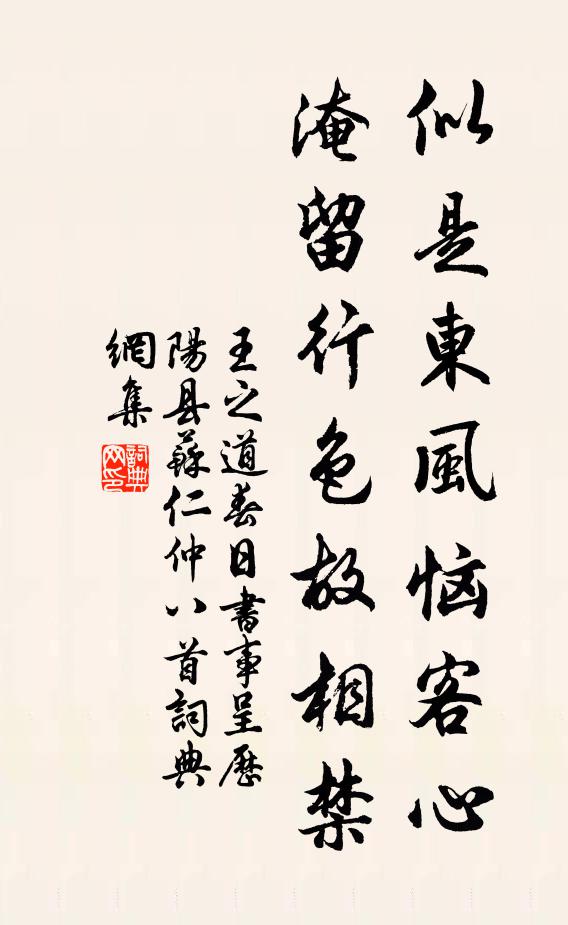 似是東風恼客心
淹留行色故相禁
王之道春日書事呈歷
陽县蘇仁仲八首詞典
網集
詞典
网印